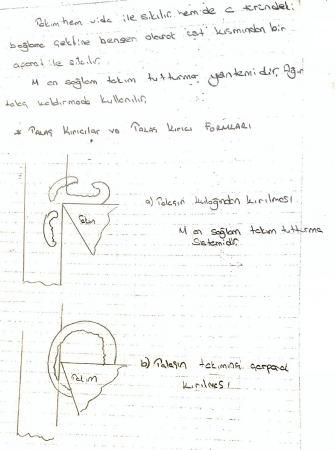 Takım hem vida ile sıkılır hemde C türündeki
bağlama şekline benzer olarak üst kısmından bir
aparat ile sıkılır.
M en sağlam takım tutturma yöntemidir. Ağır
talaş kaldırmada kullanılır.
* TALAŞ KIRICILAR ve TALAŞ KIRICI FORMLARI
a) Talaşın kırılması
Takım
M en sağlam takım tutturma
sistemidir.
b) Talaşın takıma çarparak
kırılması
Takım